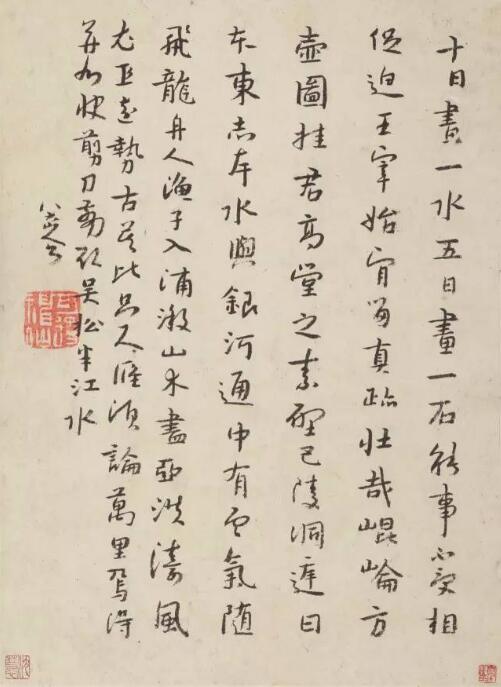 十日畫一水五日畫一石能事不受相
促迫王宰始肎留真跡壯哉崐崘方
壺圖挂君高堂之素壁巴陵洞庭日
本東赤岸水與銀河通中有雲氣隨
飛龍舟人漁子入浦漵山木盡亞洪濤風
尤工遠勢古莫比咫尺應須論萬里焉得
并州快剪刀剪取吳松半江水
八大山人
可得神仙